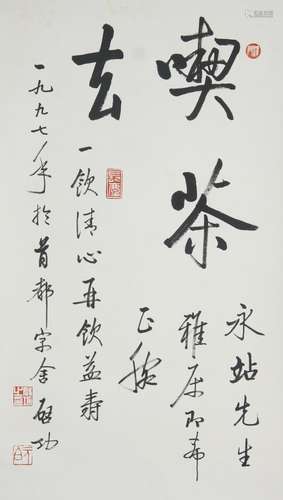 喫茶
去
永站先生
雅属即希
正腕
一飲清心再飲益壽
一九九七年於首都寓舍 啟功